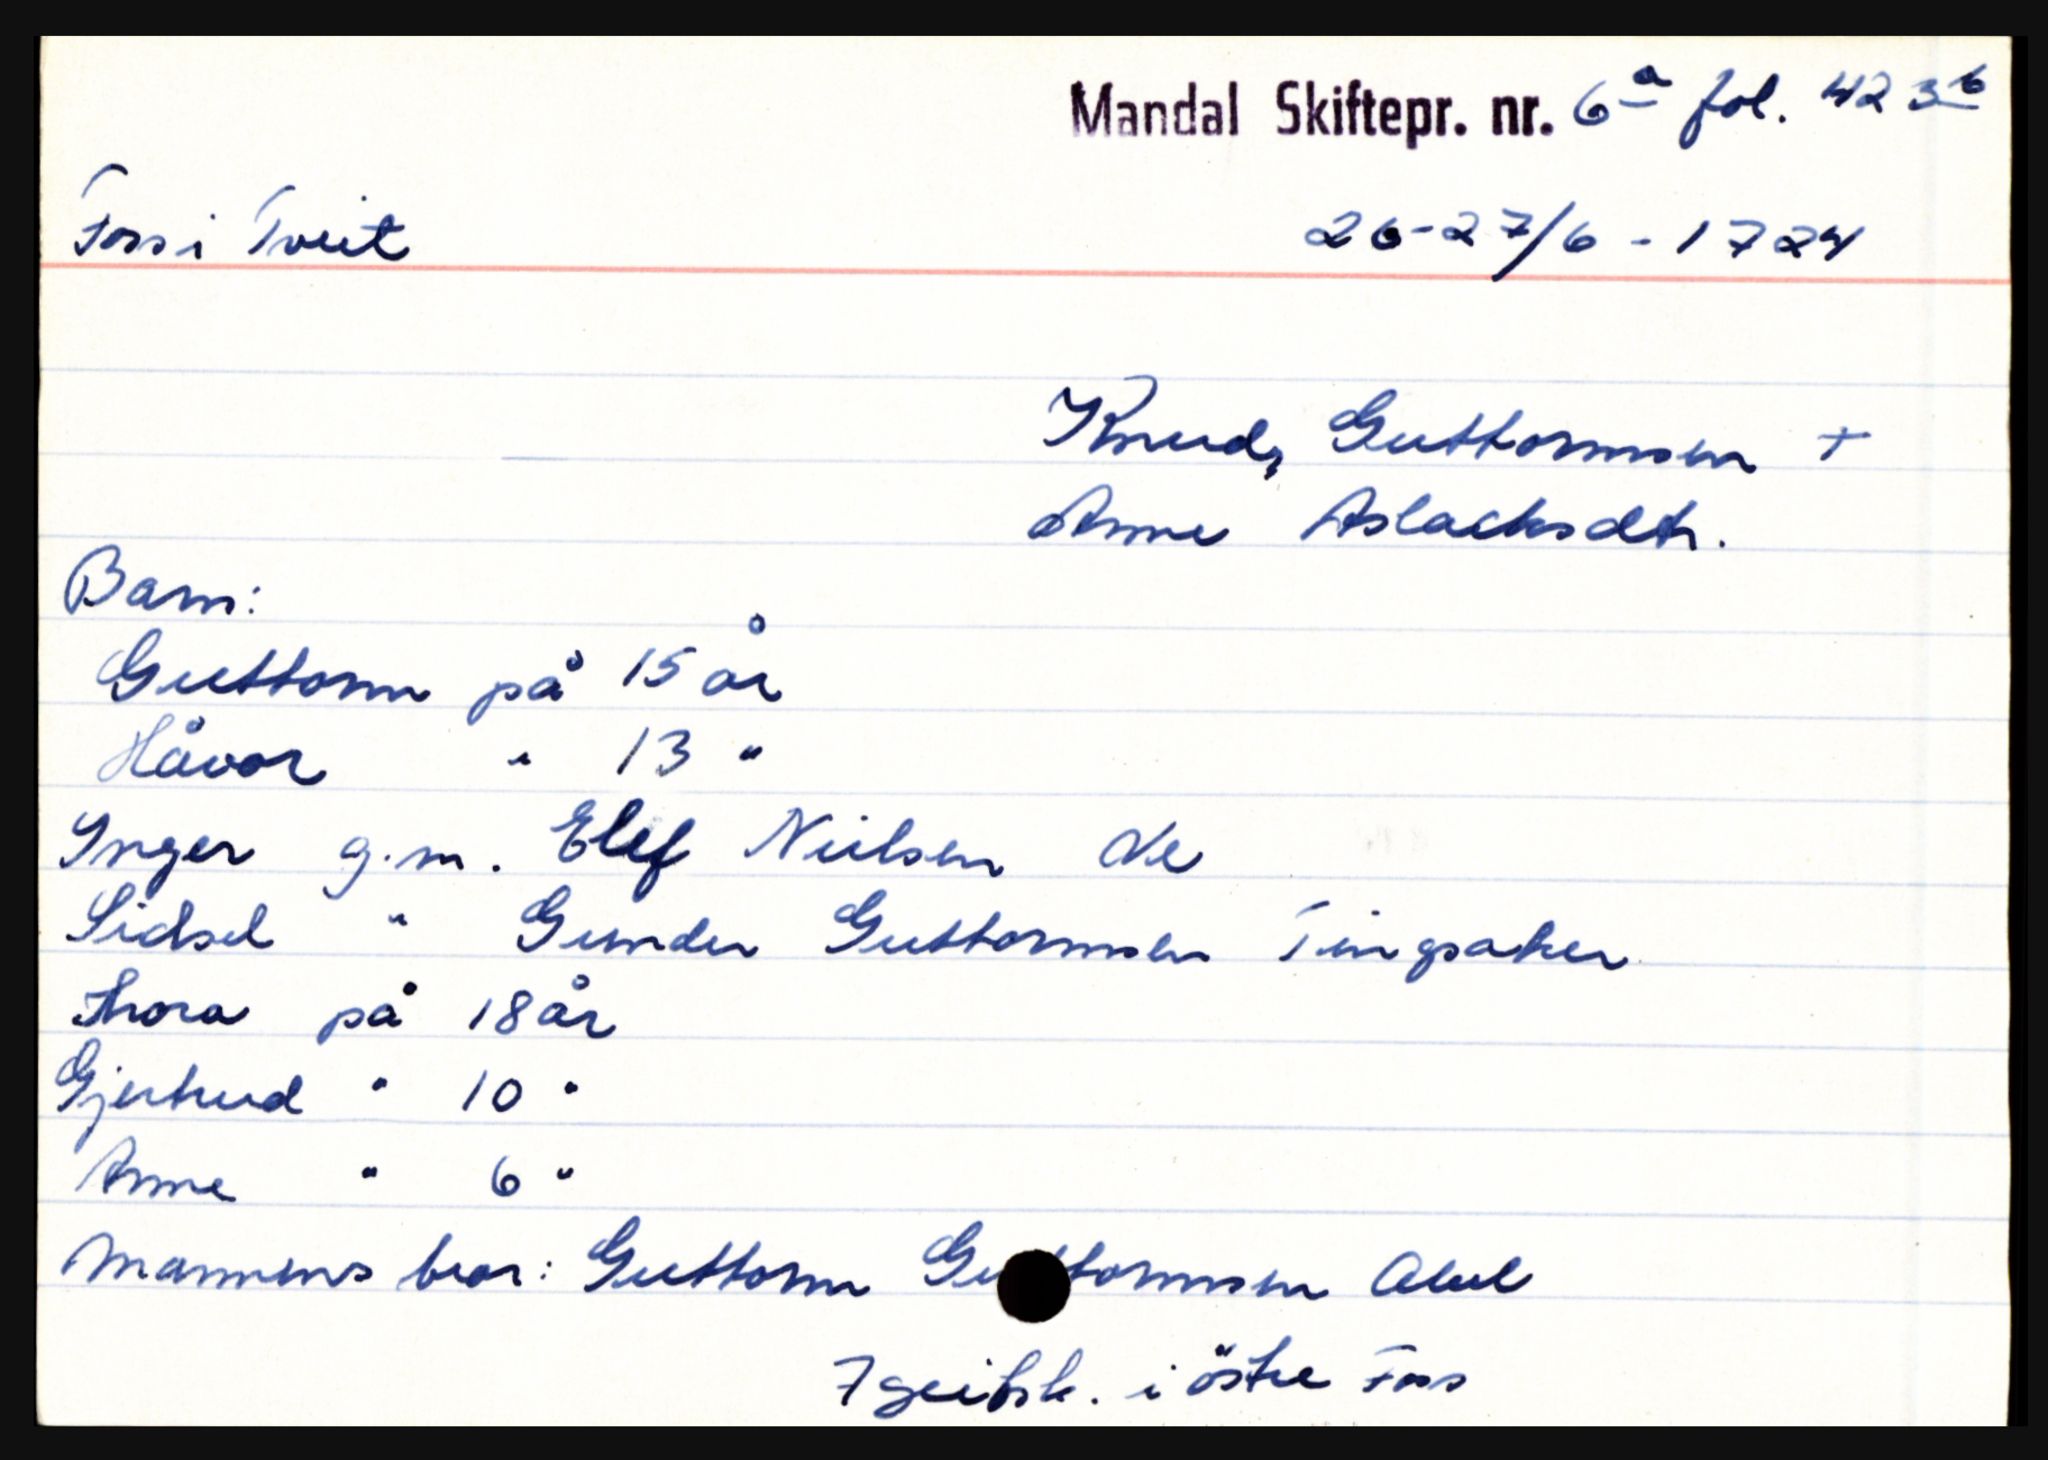 Mandal Skiftepr. nr. 6a fol. 423b
Foss i Tveit 26-27/6 - 1724
Knud, Guttormsen +
Anne Aslacksdtr.
Barn:
Guttorm på 15 år
Håvor " 13 "
Inger g.m. Elef Nielsen Ve
Sidsel " Gunder Guttormsen Tingsaker
Thora på 18 år
Gjertrud " 10 "
Anne " 6 "
Mannens bror: Guttorm Guttormsen
7 geitsk. i östre Foss